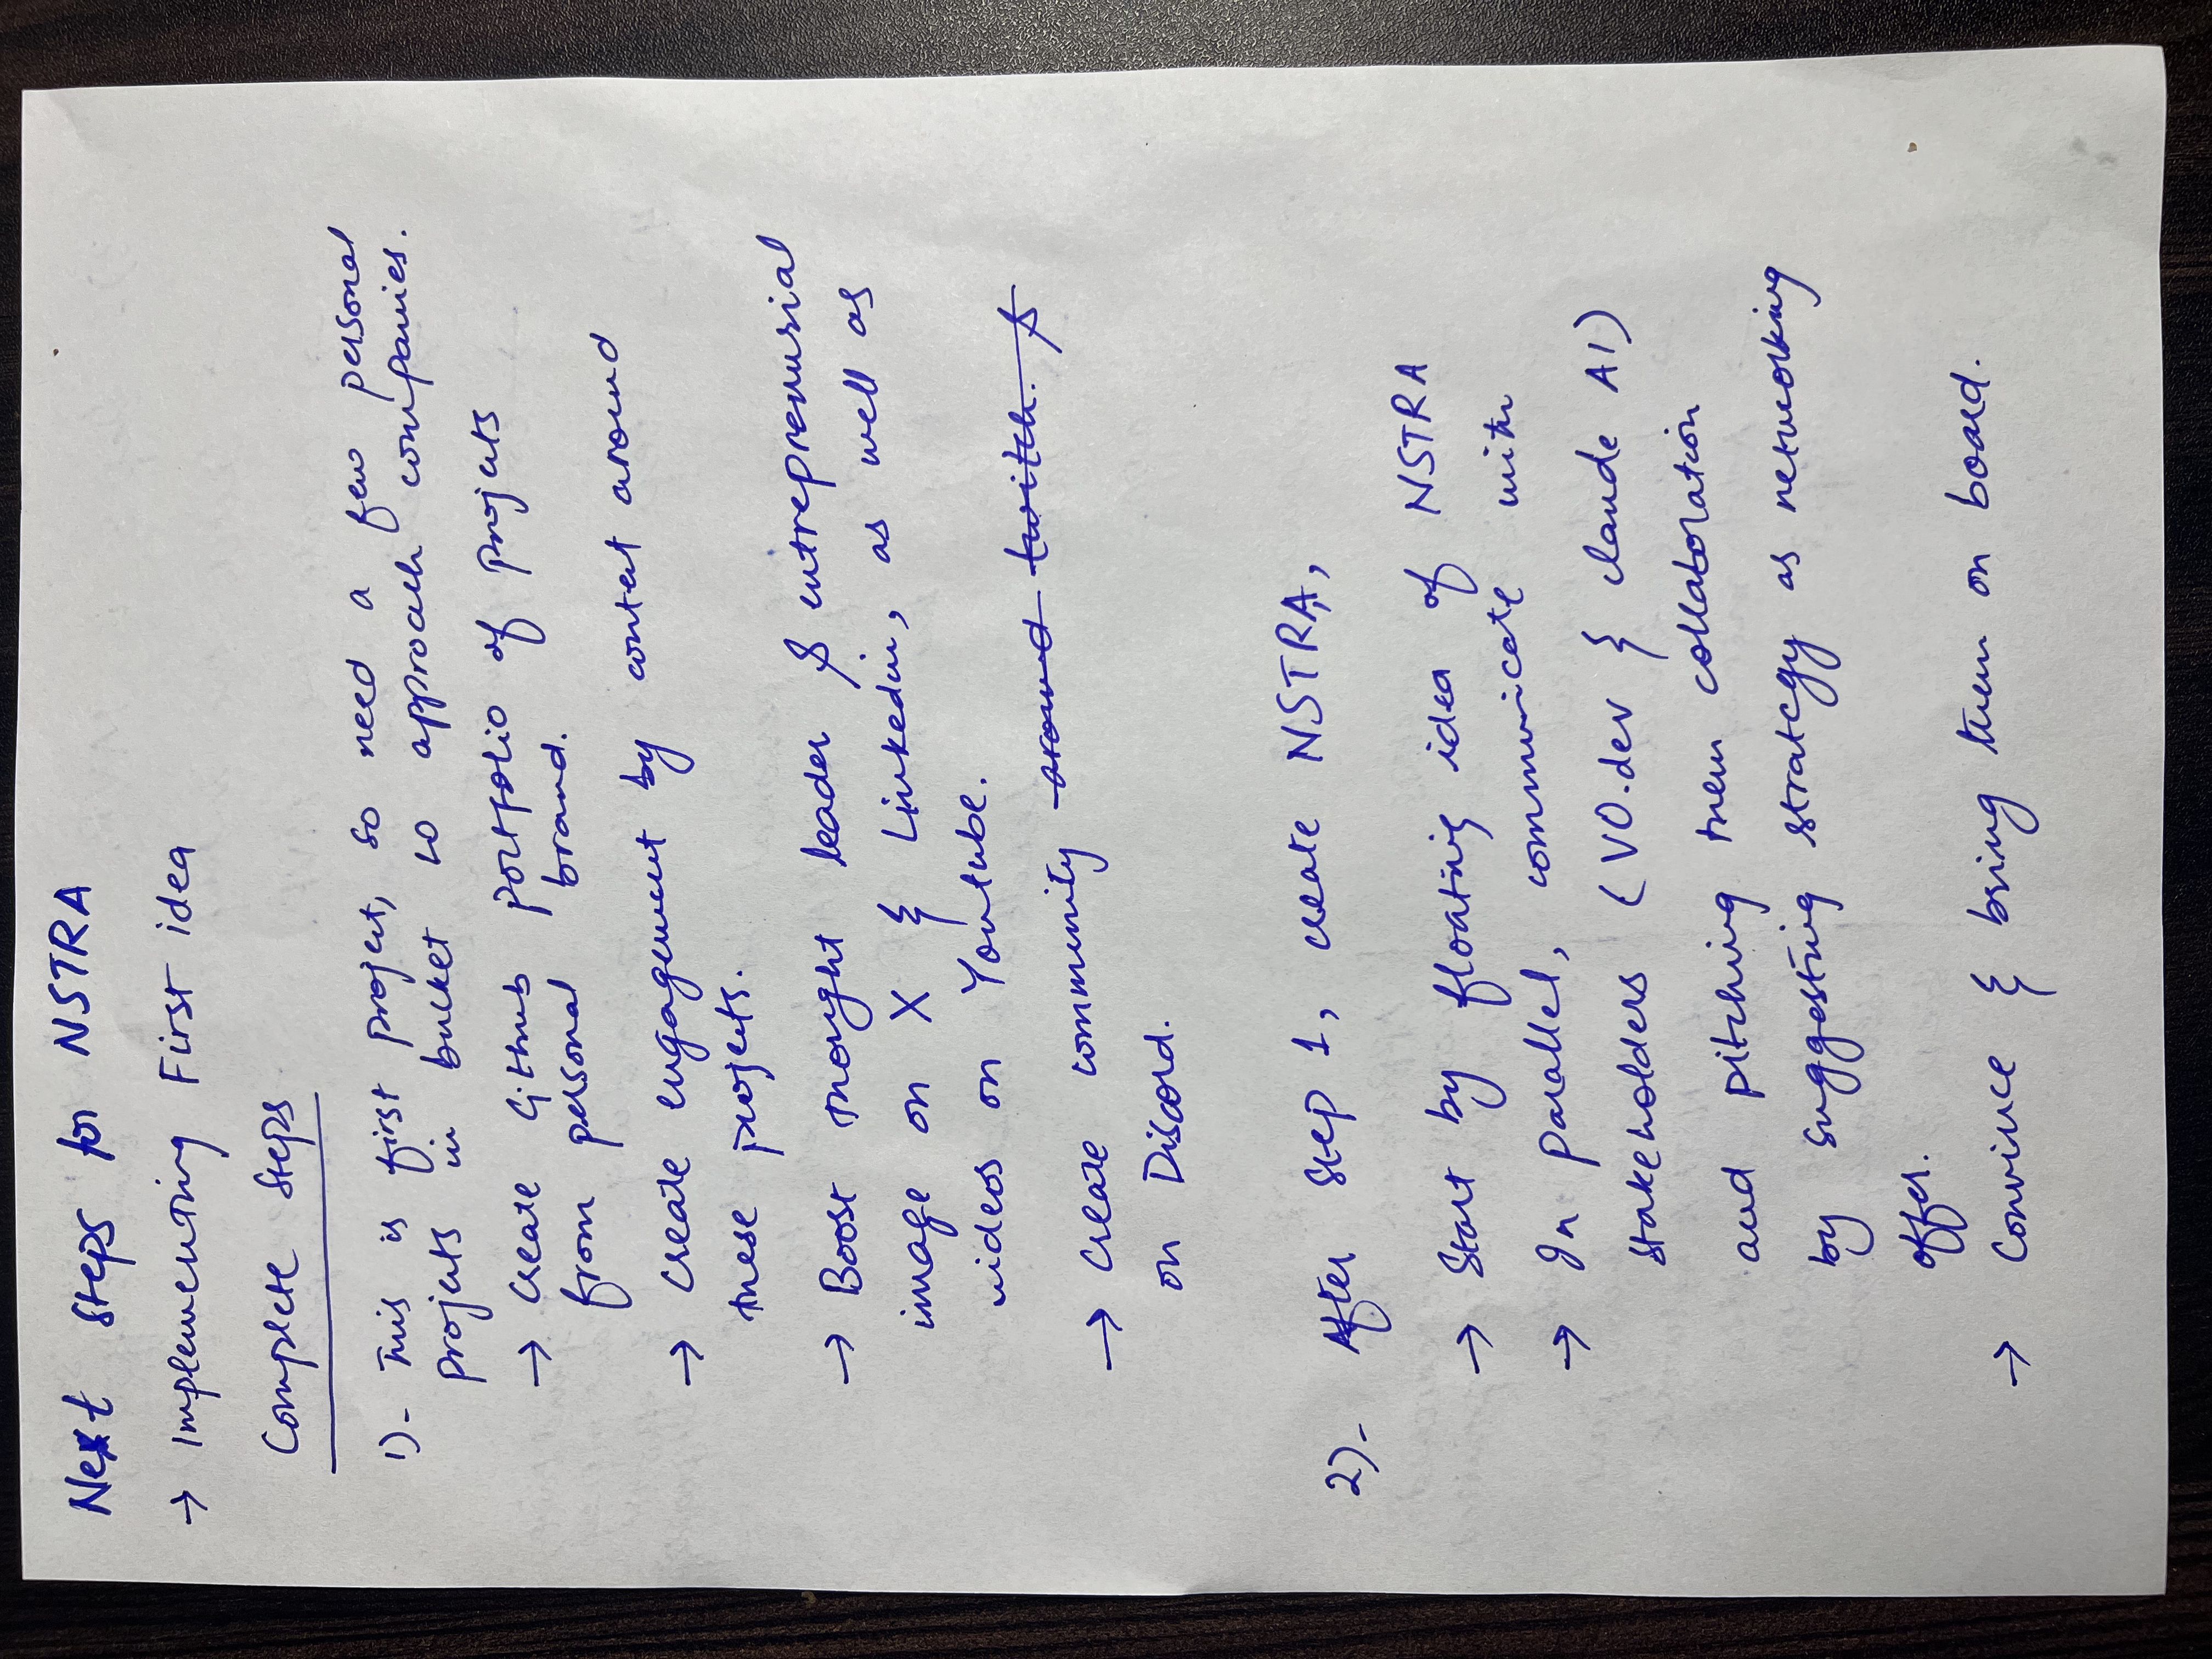 Next steps for NSTRA
→ Implementing First idea
Complete Steps
1)- This is first project, so need a few personal
projects in bucket to approach companies.
→ Create Github portfolio of projects
from personal brand.
→ Create engagement by content around
these projects.
→ Boost thought leader & entreprenusial
image on X & Linkedin, as well as
videos on Youtube.
→ Create community around twitch. &
on Discord.
2)- After step 1, create NSTRA,
→ Start by floating idea of NSTRA
→ In parallel, communicate with
stakeholders (V0.dev & Claude AI)
and pitching them collaboration
by suggesting strategy as networking
offer.
→ Convince & bring them on board.